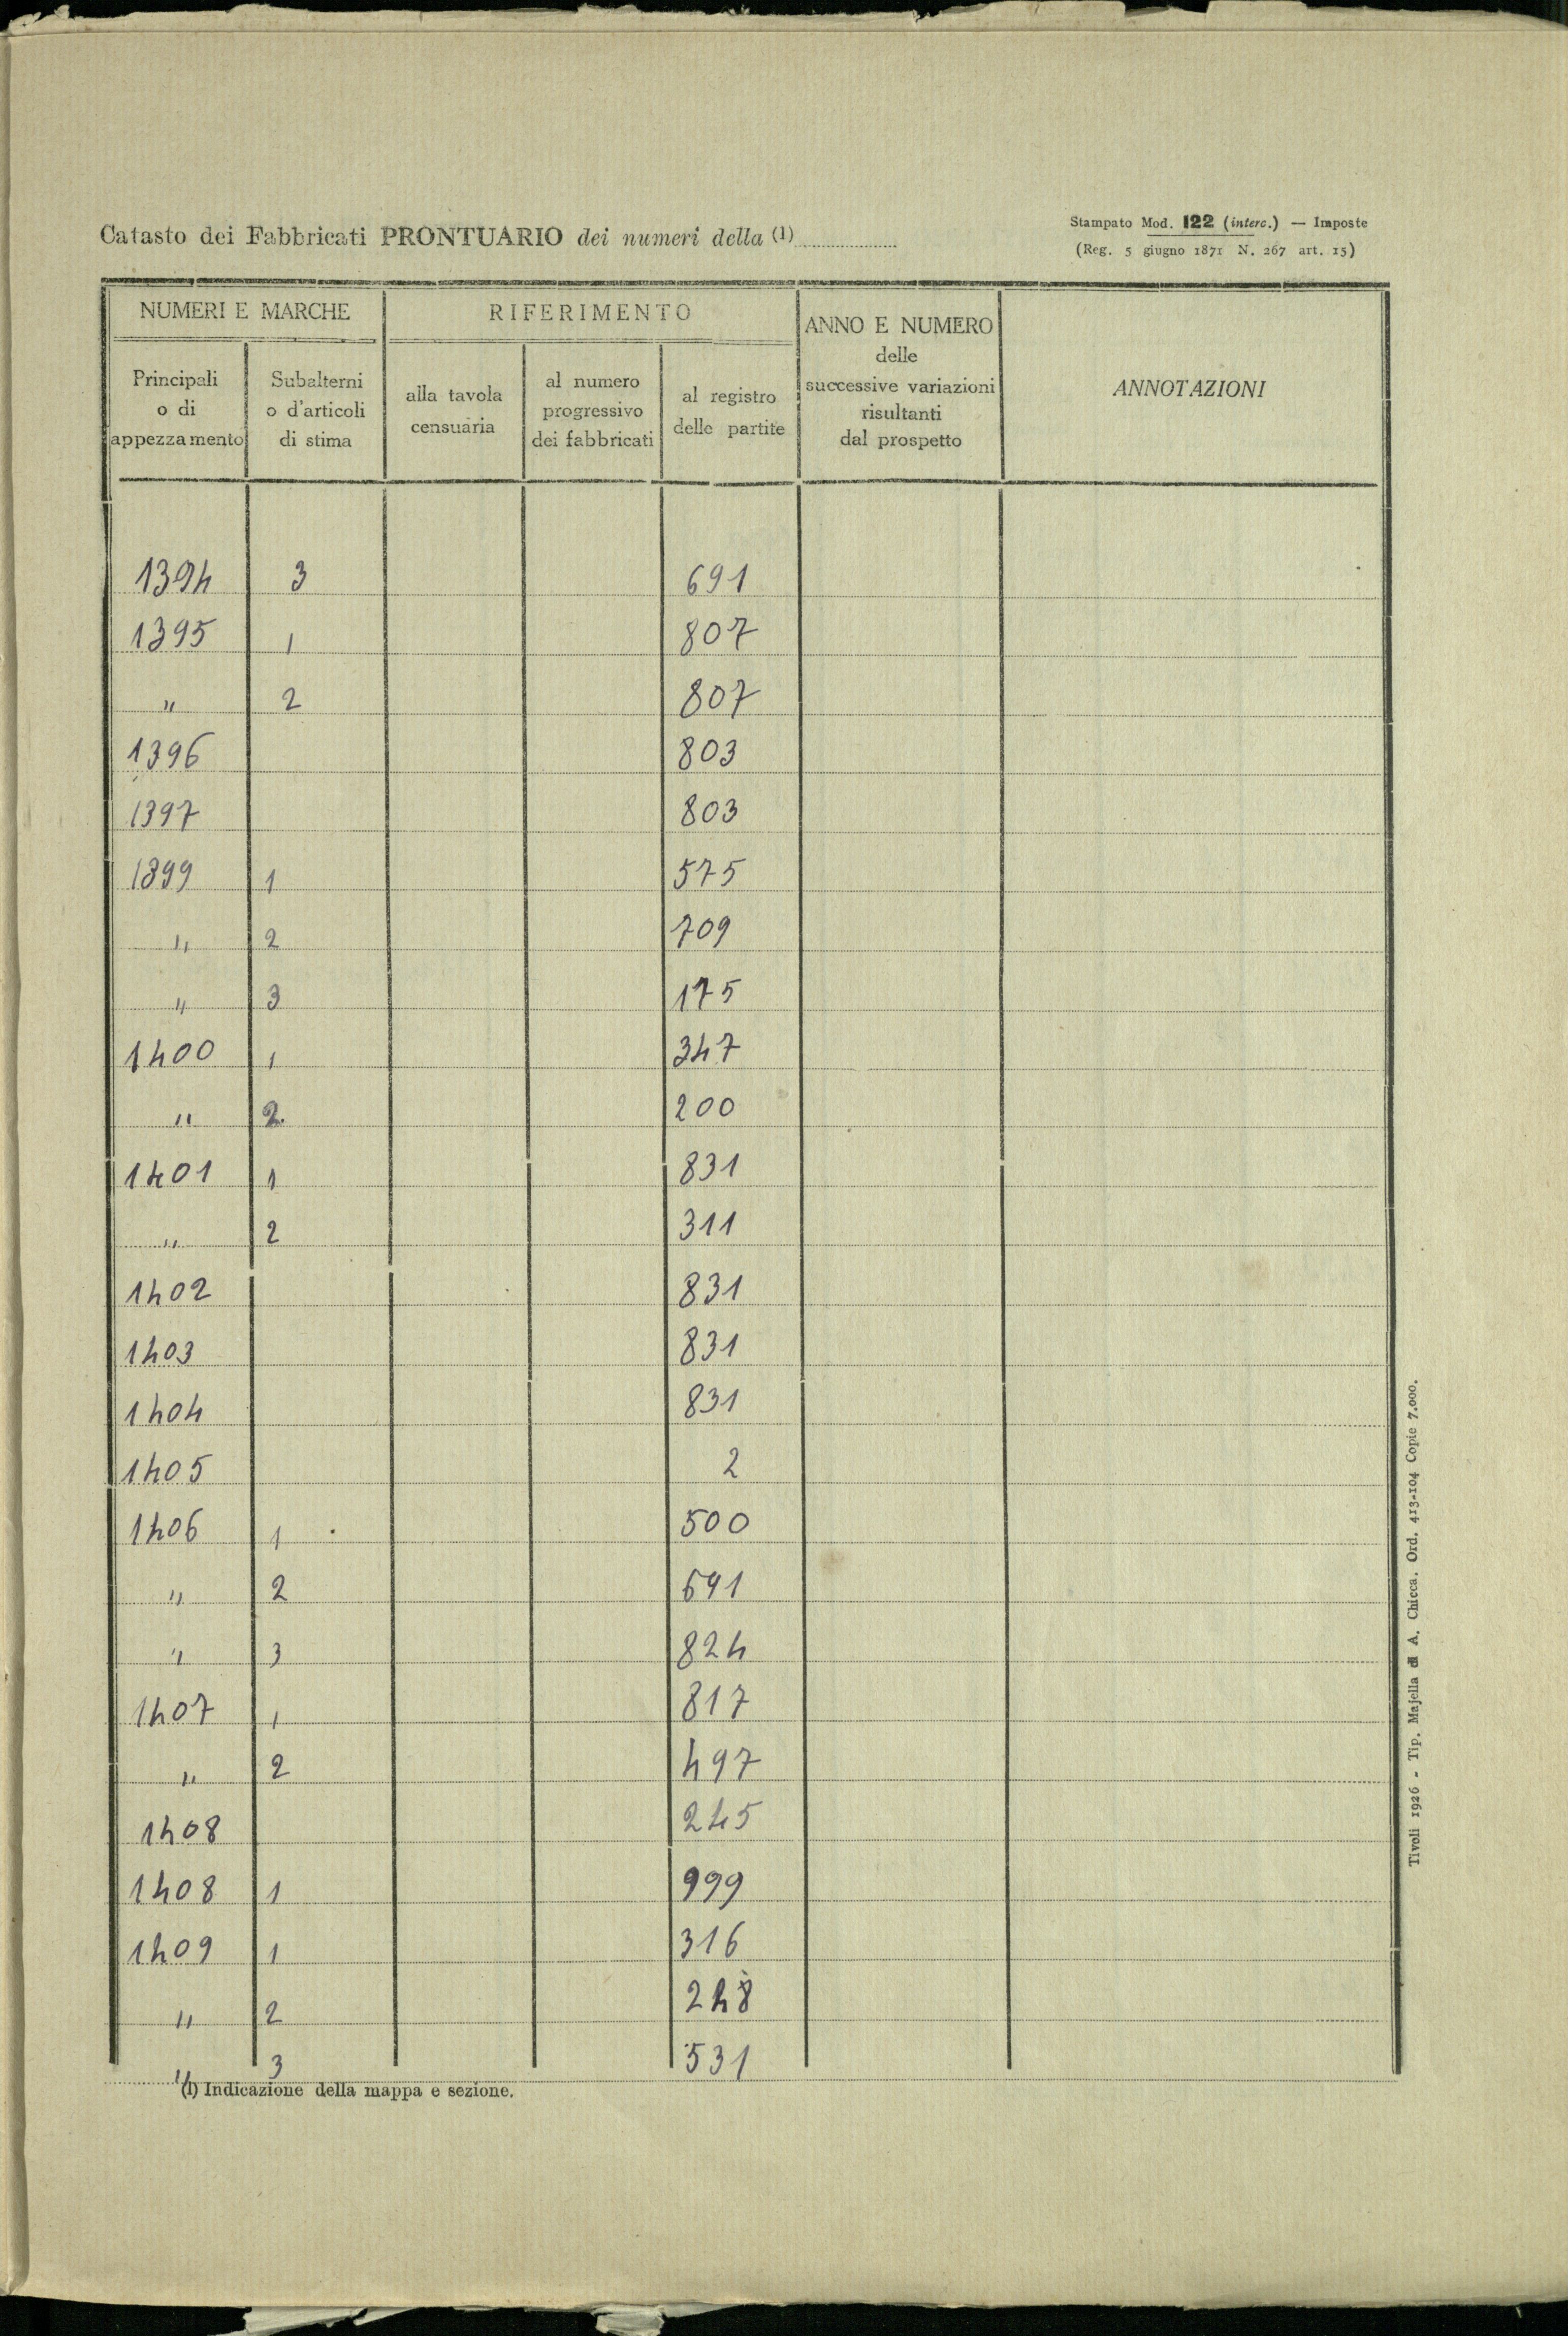 Catasto dei Fabbricati PRONTUARIO dei numeri della (1)
Stampato Mod. 122 (interc.) — Imposte
(Reg. 5 giugno 1871 N. 267 art. 15)
NUMERI E MARCHE
RIFERIMENTO
ANNO E NUMERO
delle
successive variazioni
risultanti
dal prospetto
ANNOTAZIONI
Principali
o di
appezzamento
Subalterni
o d'articoli
di stima
alla tavola
censuaria
al numero
progressivo
dei fabbricati
al registro
delle partite
1394 3 691
1395 1 807
" 2 807
1396 803
1397 803
1399 1 575
" 2 709
" 3 175
1400 1 347
" 2. 200
1401 1 831
" 2 311
1402 831
1403 831
1404 831
1405 2
1406 1 500
" 2 691
" 3 824
1407 1 817
" 2 497
1408 245
1408 1 999
1409 1 316
" 2 248
" 3 531
(1) Indicazione della mappa e sezione.
Tivoli 1926 - Tip. Majella di A. Chicca. Ord. 413-104 Copie 7.000.